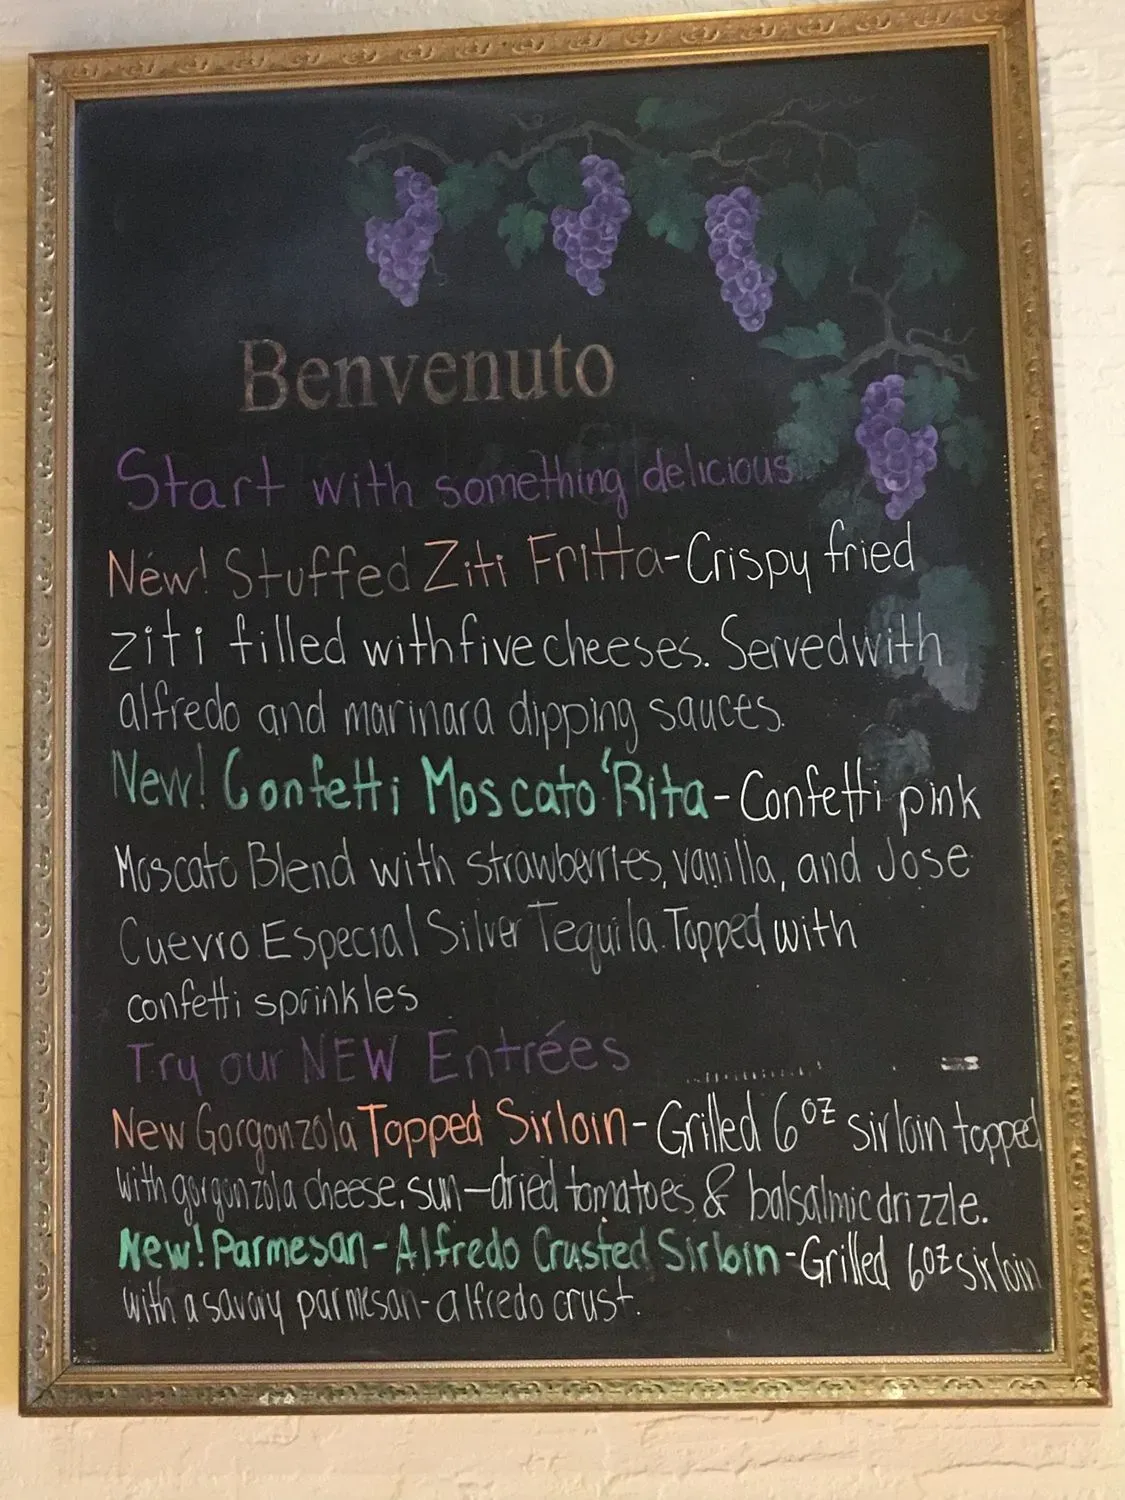 Benvenuto
Start with something delicious
New! Stuffed Ziti Fritta-Crispy fried
ziti filled with five cheeses. Served with
alfredo and marinara dipping sauces.
New! Confetti Moscato 'Rita-Confetti pink
Moscato Blend with strawberries, vanilla, and Jose
Cuevro Especial Silver Tequila. Topped with
confetti sprinkles
Try our NEW Entrées
New Gorgonzola Topped Sirloin-Grilled 6oz sirloin topped
with gorgonzola cheese, sun-dried tomatoes & balsalmic drizzle.
New! Parmesan-Alfredo Crusted Sirloin-Grilled 6oz sirloin
with a savory parmesan-alfredo crust.